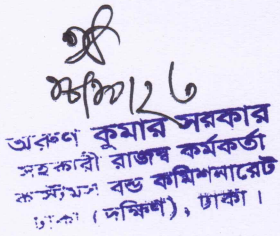 অরুণ কুমার সরকার
সহকারী রাজস্ব কর্মকর্তা
কাস্টমস বন্ড কমিশনারেট
ঢাকা (দক্ষিণ), ঢাকা ।